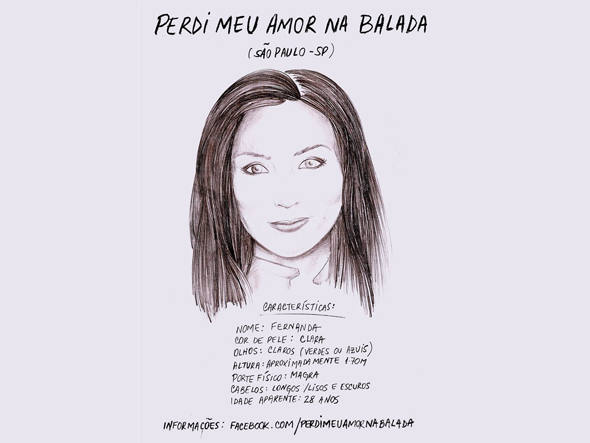 PERDI MEU AMOR NA BALADA
(SÃO PAULO - SP)
CARACTERÍSTICAS:
NOME: FERNANDA
COR DE PELE: CLARA
OLHOS: CLAROS (VERDES OU AZUIS)
ALTURA: APROXIMADAMENTE 1.70M
PORTE FÍSICO: MAGRA
CABELOS: LONGOS / LISOS E ESCUROS
IDADE APARENTE: 28 ANOS
INFORMAÇÕES: FACEBOOK.COM/PERDIMEUAMORNABALADA